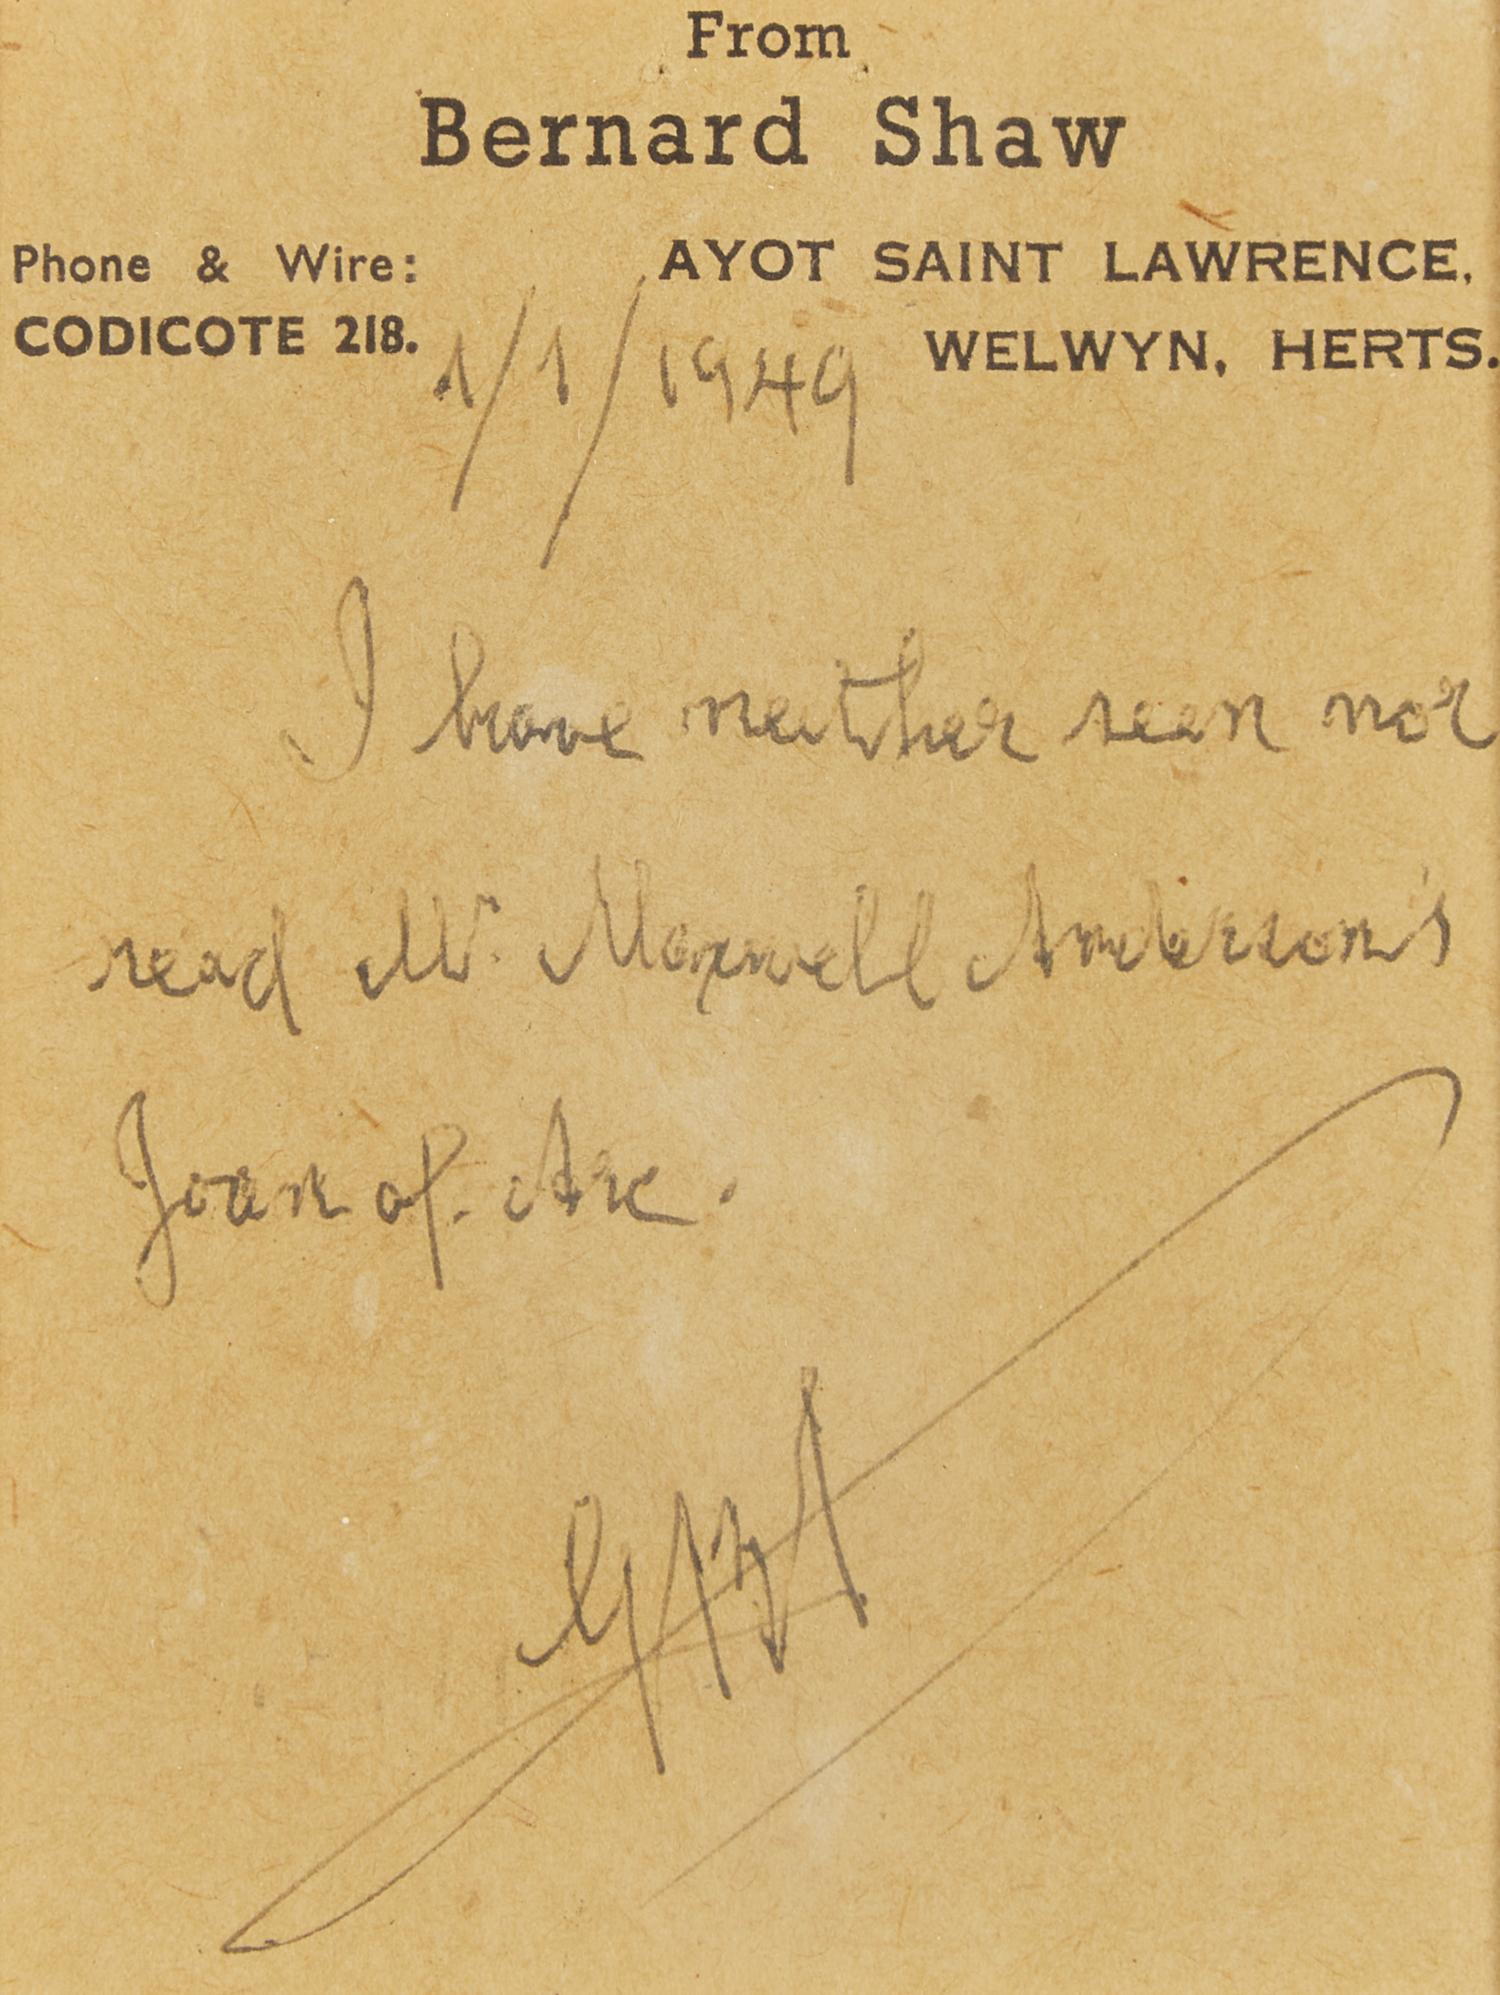 From
Bernard Shaw
Phone & Wire: AYOT SAINT LAWRENCE,
CODICOTE 218. WELWYN, HERTS.
1/1/1949
I have neither seen nor
read Mr. Maxwell Anderson's
Joan of Arc.
GBS